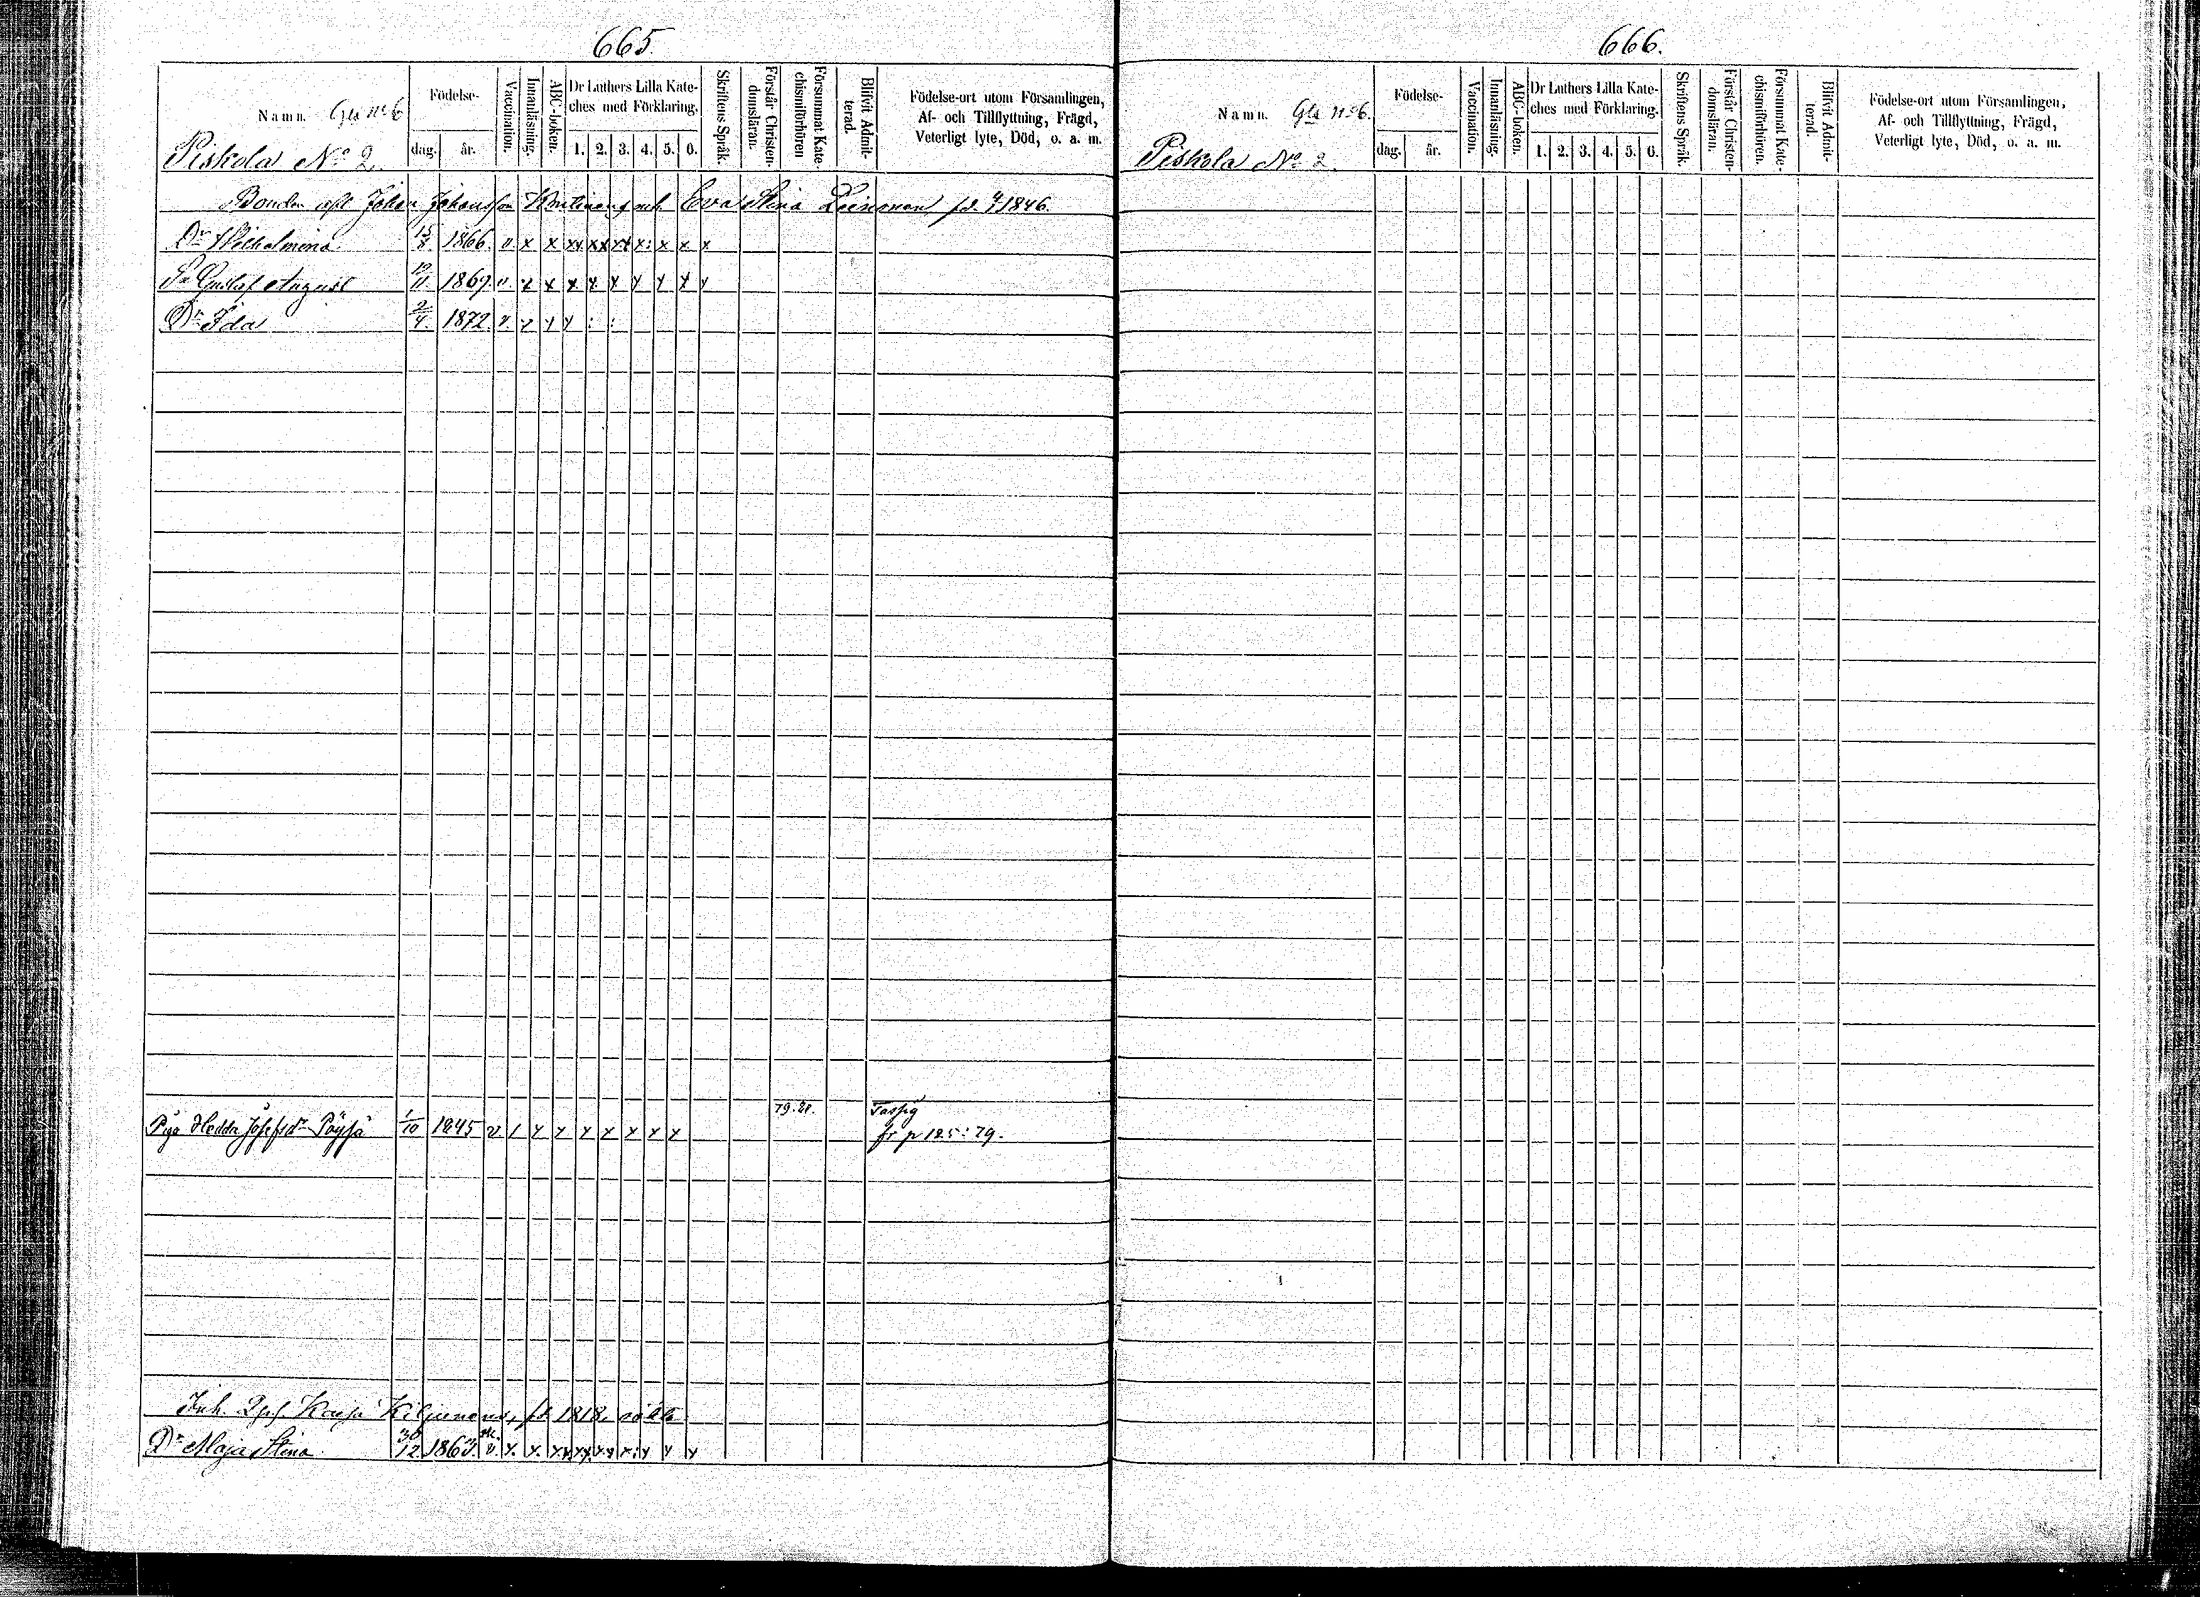 665.
Namn. Gla No 6
Piskola No 2.
Födelse-
dag. år.
Vaccination.
Innanläsning.
ABC-boken.
Dr Luthers Lilla Kate-
ches med Förklaring.
1. 2. 3. 4. 5. 6.
Skriftens Språk.
Förstår Christen-
domsläran.
Försummat Kate-
chismiförhören
Blifvit Admit-
terad.
Födelse-ort utom Församlingen,
Af- och Tillflyttning, Frägd,
Veterligt lyte, Död, o. a. m.
Bonden Johan Johansson Eva Stina fd. 1846.
Dr Wilhelmina 15/8 1866. v x x xx xx xx x: x x x
Sn Gustaf August 19/11 1869. v x x x x x x x x x
Dr Ida 2/4 1872. v. x x x : :
79.80. Tassig
Piga Hedda Josefsdr Töyssä 1/10 1845 v / x x x x x x x fr p 125: 79.
Inh. Kajsa Kilpinens, fd. 1818,
Dr Maja Stina 30/12 1863. v. x. x. xx xx xx x: x x x
666.
Namn. Gla No 6.
Piskola No 2.
Födelse-
dag. år.
Vaccination.
Innanläsning.
ABC-boken.
Dr Luthers Lilla Kate-
ches med Förklaring.
1. 2. 3. 4. 5. 6.
Skriftens Språk.
Förstår Christen-
domsläran.
Försummat Kate-
chismiförhören.
Blifvit Admit-
terad.
Födelse-ort utom Församlingen,
Af- och Tillflyttning, Frägd,
Veterligt lyte, Död, o. a. m.